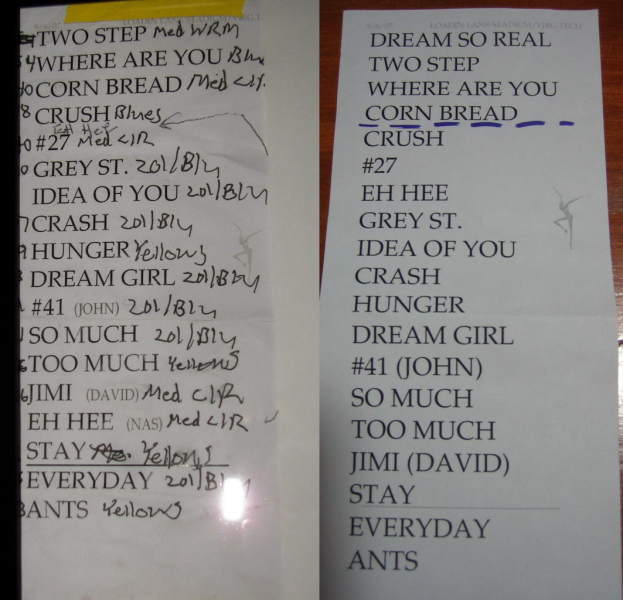 9/6/07
TWO STEP Med WRM
WHERE ARE YOU Blu
CORN BREAD Med CLR.
CRUSH Blues
EH HEE
#27 Med CLR
GREY ST. 201/Blu
IDEA OF YOU 201/Blu
CRASH 201/Blu
HUNGER Yellows
DREAM GIRL 201/Blu
#41 (JOHN) 201/Blu
SO MUCH 201/Blu
TOO MUCH Yellows
JIMI (DAVID) Med CLR
EH HEE (NAS) Med CLR
STAY Yellows
EVERYDAY 201/Blu
ANTS Yellows
9/6/07 LOADIN LANE STADIUM/VIRG. TECH
DREAM SO REAL
TWO STEP
WHERE ARE YOU
CORN BREAD
CRUSH
#27
EH HEE
GREY ST.
IDEA OF YOU
CRASH
HUNGER
DREAM GIRL
#41 (JOHN)
SO MUCH
TOO MUCH
JIMI (DAVID)
STAY
EVERYDAY
ANTS